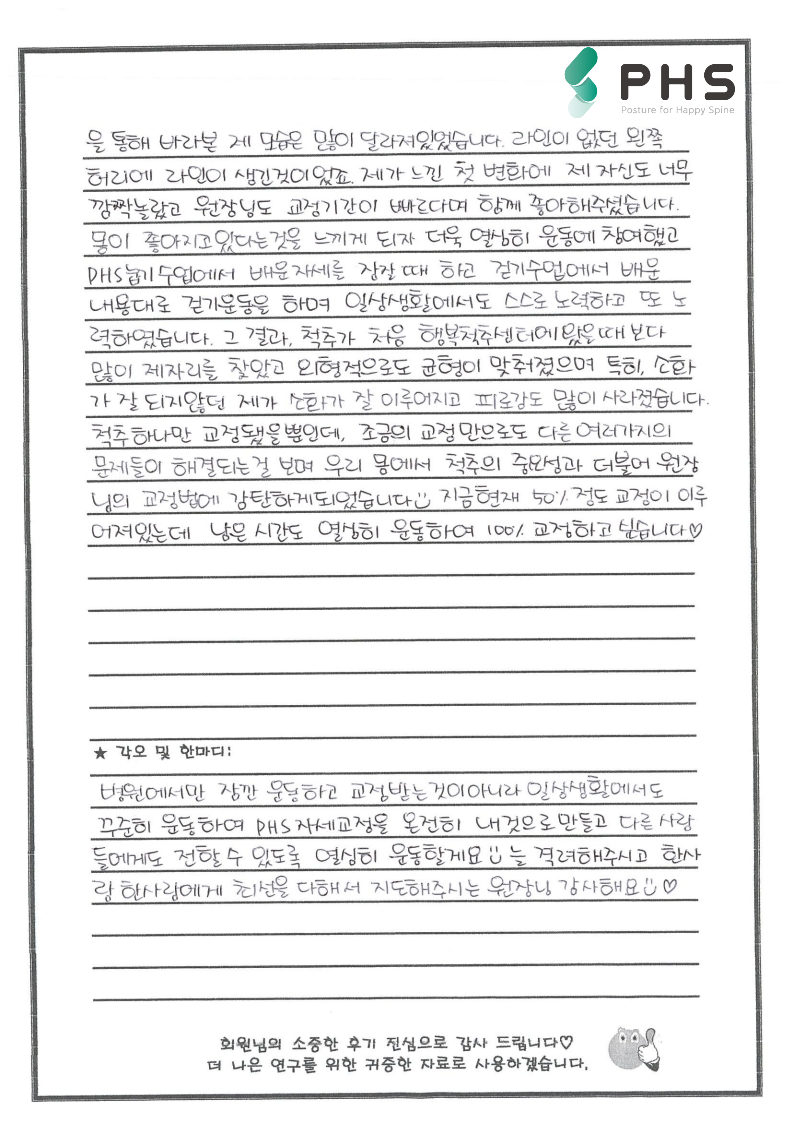 PHS
Posture for Happy Spine
을 통해 바라본 제 모습은 많이 달라져있었습니다. 라인이 없던 왼쪽
허리에 라인이 생긴것이었죠. 제가 느낀 첫 변화에 제 자신도 너무
깜짝놀랐고 원장님도 교정기간이 빠르다며 함께 좋아해주셨습니다.
몸이 좋아지고있다는것을 느끼게 되자 더욱 열심히 운동에 참여했고
PHS눕기수업에서 배운자세를 잠잘때 하고 걷기수업에서 배운
내용대로 걷기운동을 하며 일상생활에서도 스스로 노력하고 또 노
력하였습니다. 그 결과, 척추가 처음 행복척추센터에 왔을때보다
많이 제자리를 찾았고 외형적으로도 균형이 맞춰졌으며 특히, 소화
가 잘 되지않던 제가 소화가 잘 이루어지고 피로감도 많이 사라졌습니다.
척추하나만 교정됐을뿐인데, 조금의 교정만으로도 다른 여러가지의
문제들이 해결되는걸 보며 우리 몸에서 척추의 중요성과 더불어 원장
님의 교정법에 감탄하게되었습니다 지금현재 50% 정도 교정이 이루
어져있는데 남은 시간도 열심히 운동하여 100% 교정하고 싶습니다♡
★ 각오 및 한마디:
병원에서만 잠깐 운동하고 교정받는것이아니라 일상생활에서도
꾸준히 운동하여 PHS자세교정을 온전히 내것으로만들고 다른 사람
들에게도 전할 수 있도록 열심히 운동할게요 늘 격려해주시고 한사
람 한사람에게 최선을 다해서 지도해주시는 원장님 감사해요 ♡
회원님의 소중한 후기 진심으로 감사 드립니다♡
더 나은 연구를 위한 귀중한 자료로 사용하겠습니다.